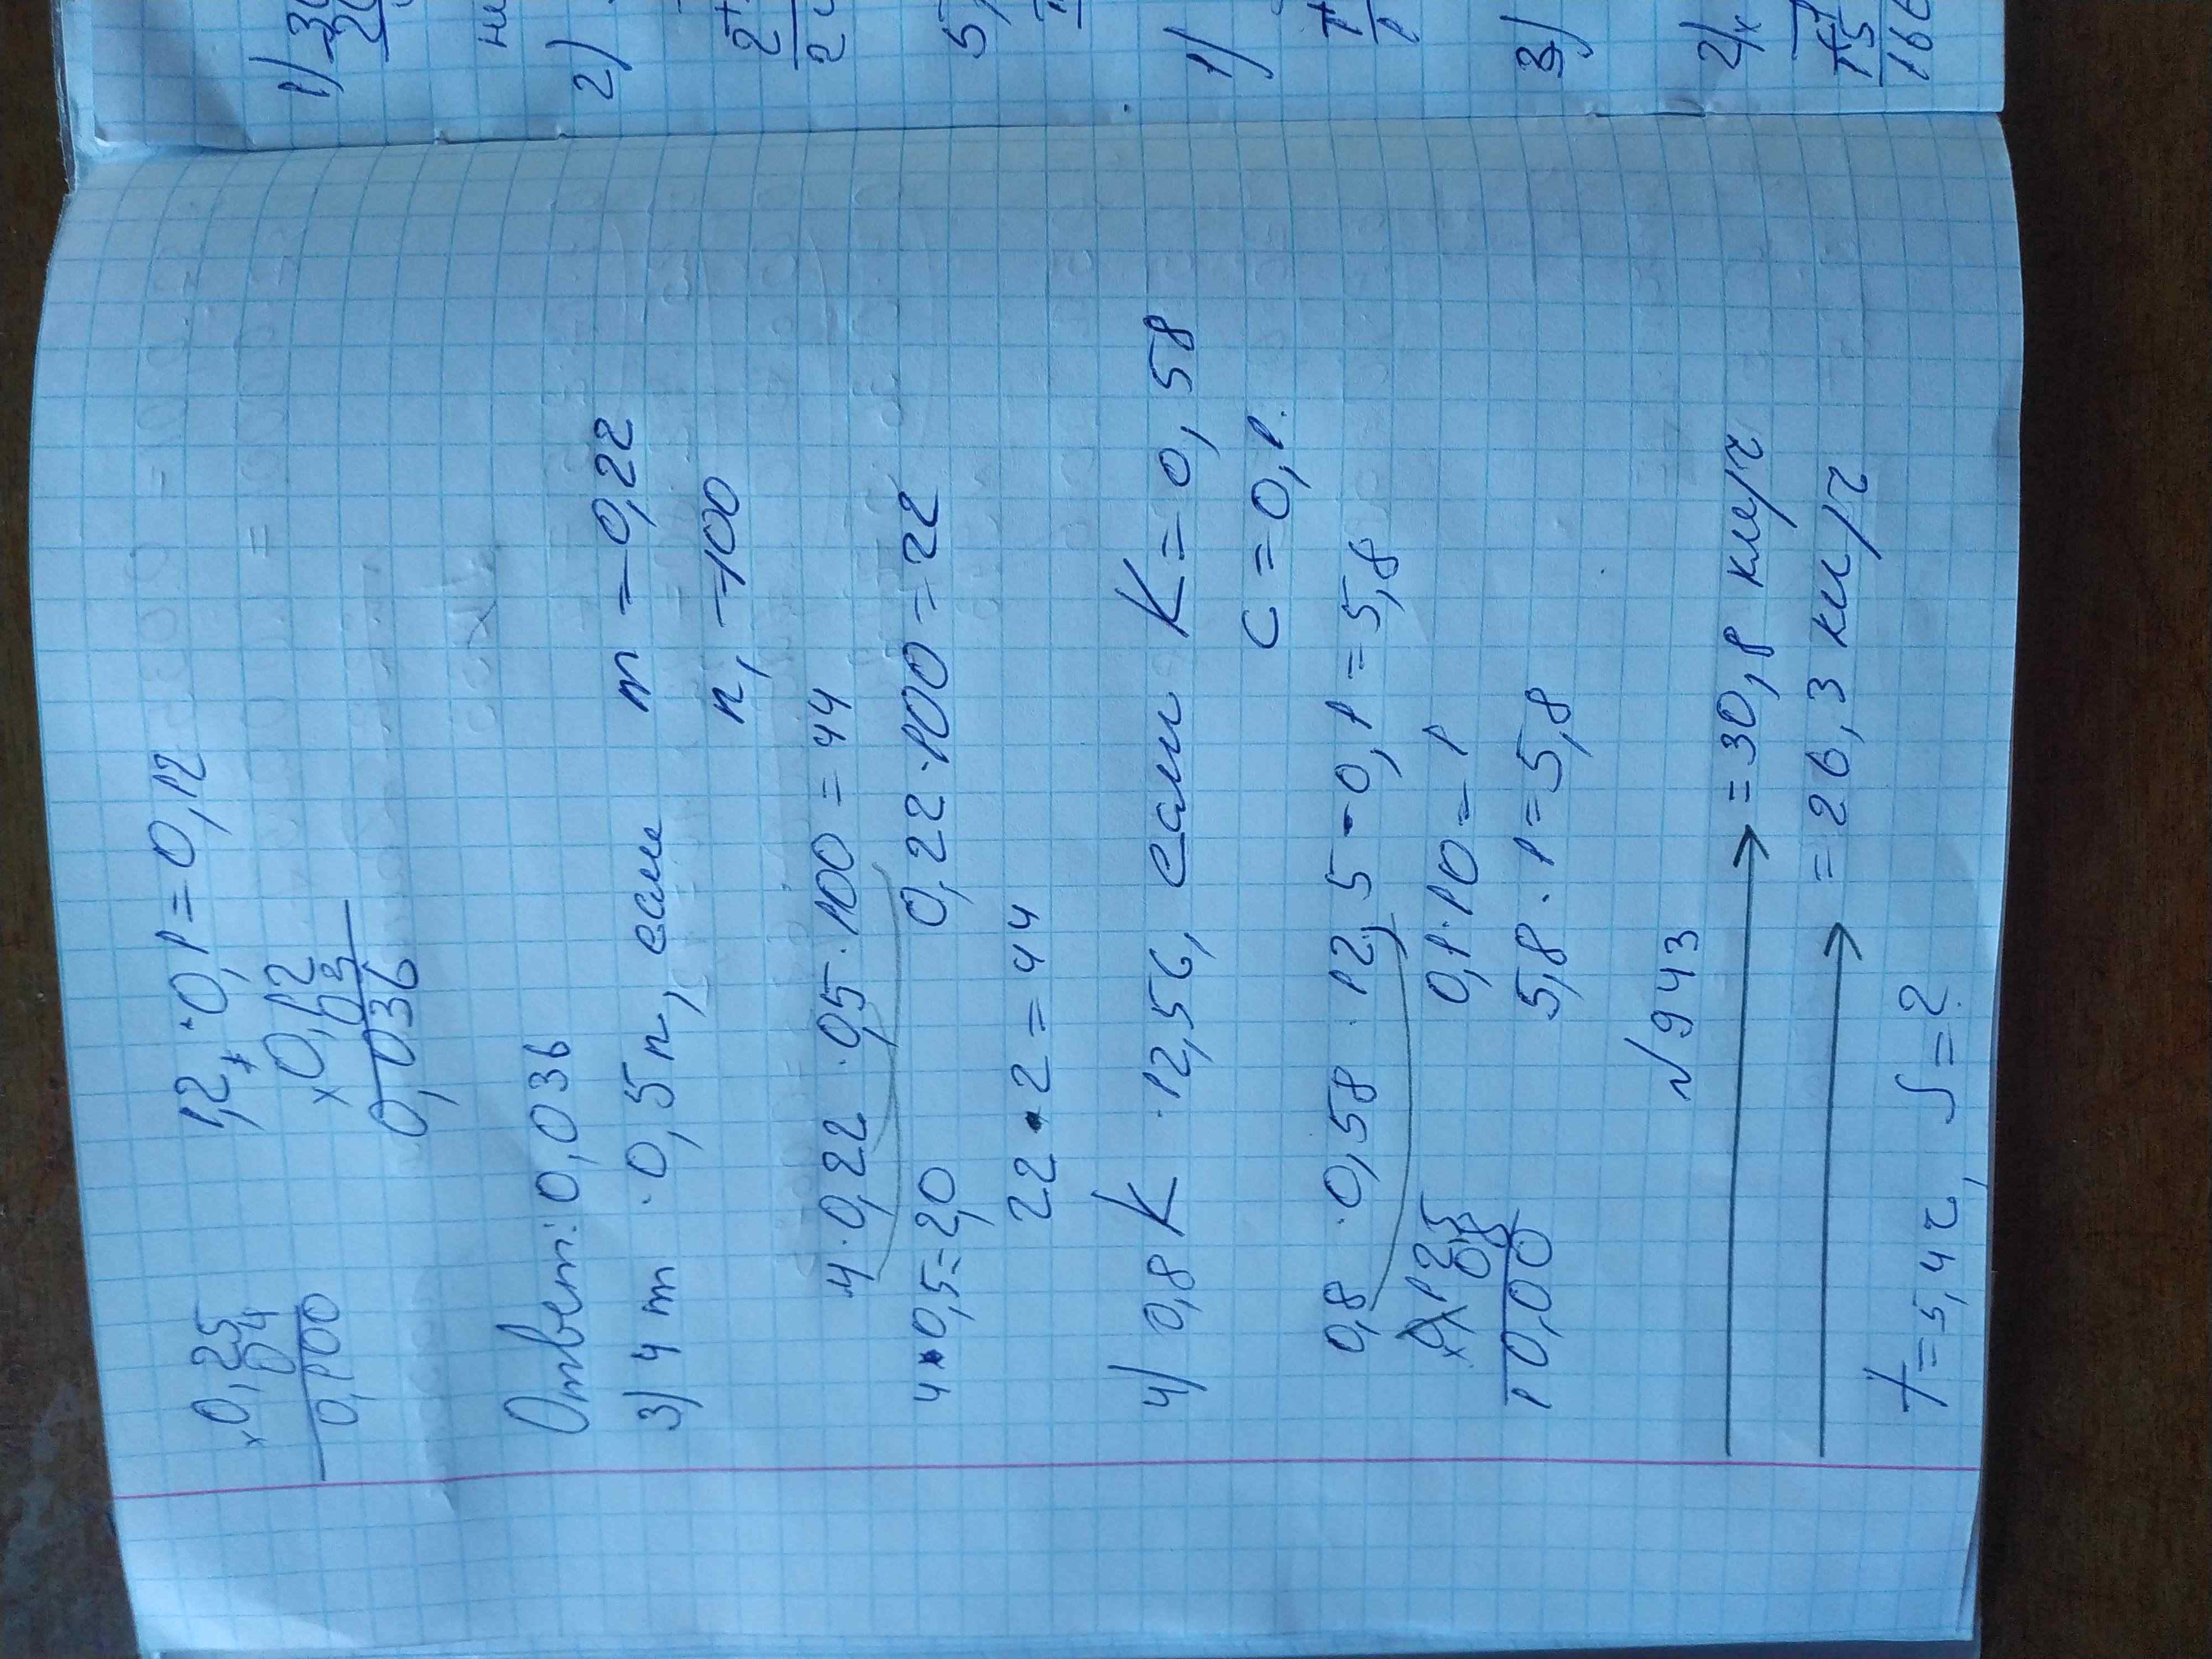 ×0,25   1,2 · 0,1 = 0,12
04   ×0,12
0,100   03
0,036
Ответ: 0,036
3) 4m · 0,5n, если m = 0,22
n, = 100
4 · 0,22 · 0,5 · 100 = 44
4 · 0,5 = 2,0   0,22 · 100 = 22
22 · 2 = 44
4) 0,8 K · 12,5c, если K = 0,58
c = 0,1.
0,8 · 0,58 · 12,5 · 0,1 = 5,8
×12,5   0,1 · 10 = 1
0,8
10,00   5,8 · 1 = 5,8
№943
= 30,8 км/ч
= 26,3 км/ч
t = 5,4 ч, S = ?
1)
2)
5)
1)
3)
2)